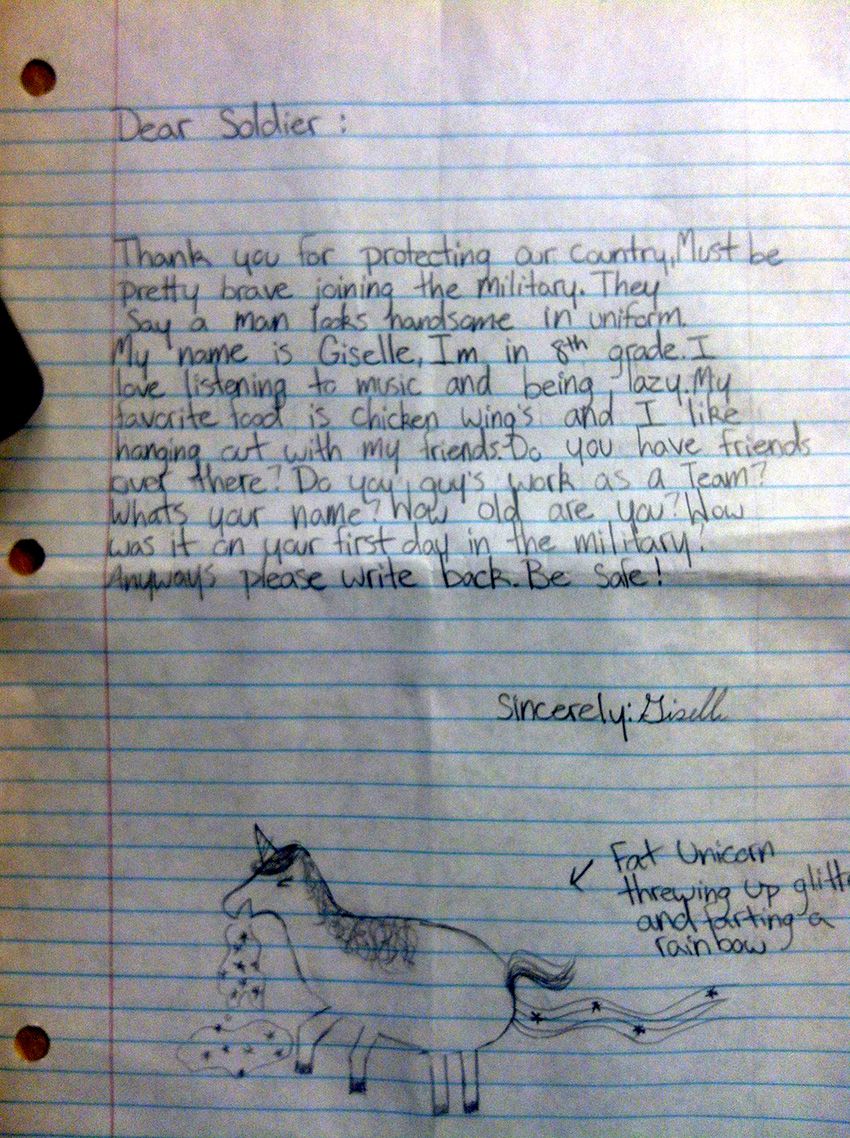 Dear Soldier :
Thank you for protecting our country. Must be
pretty brave joining the military. They
Say a man looks handsome in uniform.
My name is Giselle, Im in 8th grade. I
love listening to music and being lazy. My
favorite food is chicken wing's and I like
hanging out with my friends. Do you have friends
over there? Do you guy's work as a Team?
Whats your name? How old are you? How
was it on your first day in the military?
Anyways please write back. Be safe!
Sincerely: Giselle
Fat Unicorn
threwing up glitte
and farting a
rainbow